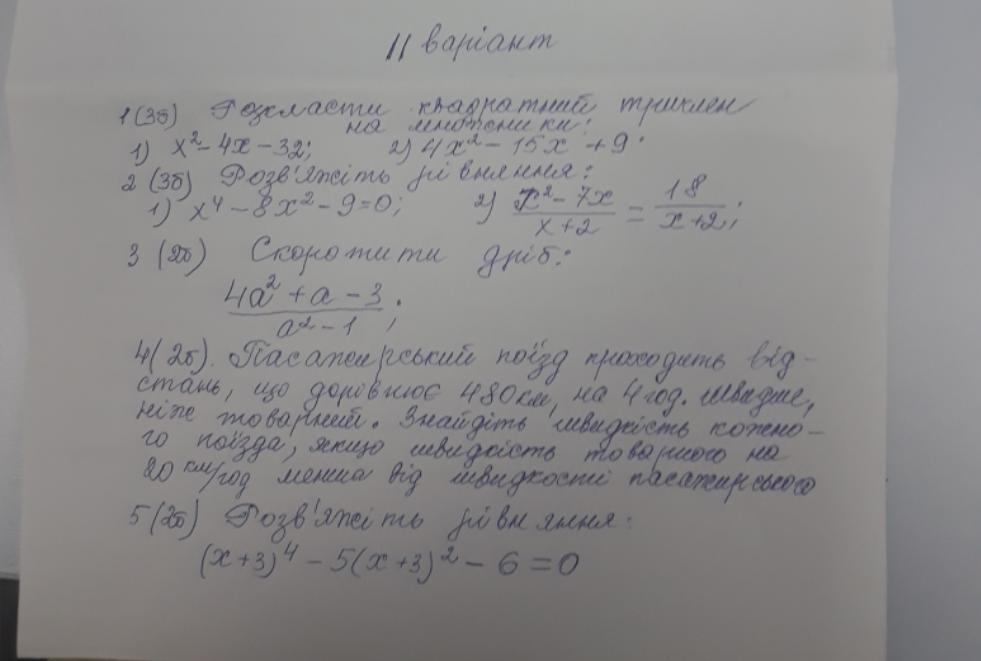 II варіант
1(3б) Розкласти квадратний тричлен
на множники:
1) x² - 4x - 32; 2) 4x² - 15x + 9.
2 (3б) Розв'яжіть рівняння:
1) x⁴ - 8x² - 9 = 0; 2) (x² - 7x)/(x+2) = 18/(x+2);
3 (2б) Скоротити дріб:
(4a² + a - 3)/(a² - 1);
4(2б). Пасажирський поїзд проходить від-
стань, що дорівнює 480км, на 4 год. швидше,
ніж товарний. Знайдіть швидкість кожно-
го поїзда, якщо швидкість товарного на
20 км/год менша від швидкості пасажирського
5 (2б) Розв'яжіть рівняння:
(x+3)⁴ - 5(x+3)² - 6 = 0